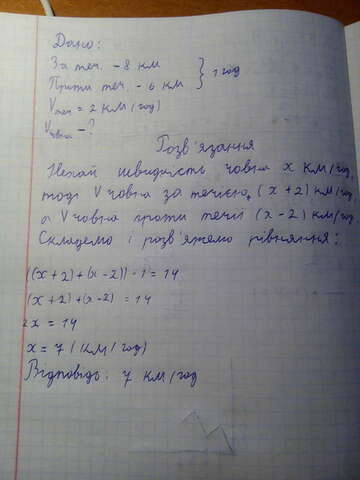 Дано:
За теч. - 8 км
Проти теч. - 6 км } 1 год
Vтеч = 2 км/год)
Vчовна - ?
Розв'язання
Нехай швидкість човна x км/год,
тоді V човна за течією, (x + 2) км/год,
а V човна проти течії (x - 2) км/год.
Складемо і розв'яжемо рівняння:
((x + 2) + (x - 2)) · 1 = 14
(x + 2) + (x - 2) = 14
2x = 14
x = 7 (км/год)
Відповідь: 7 км/год